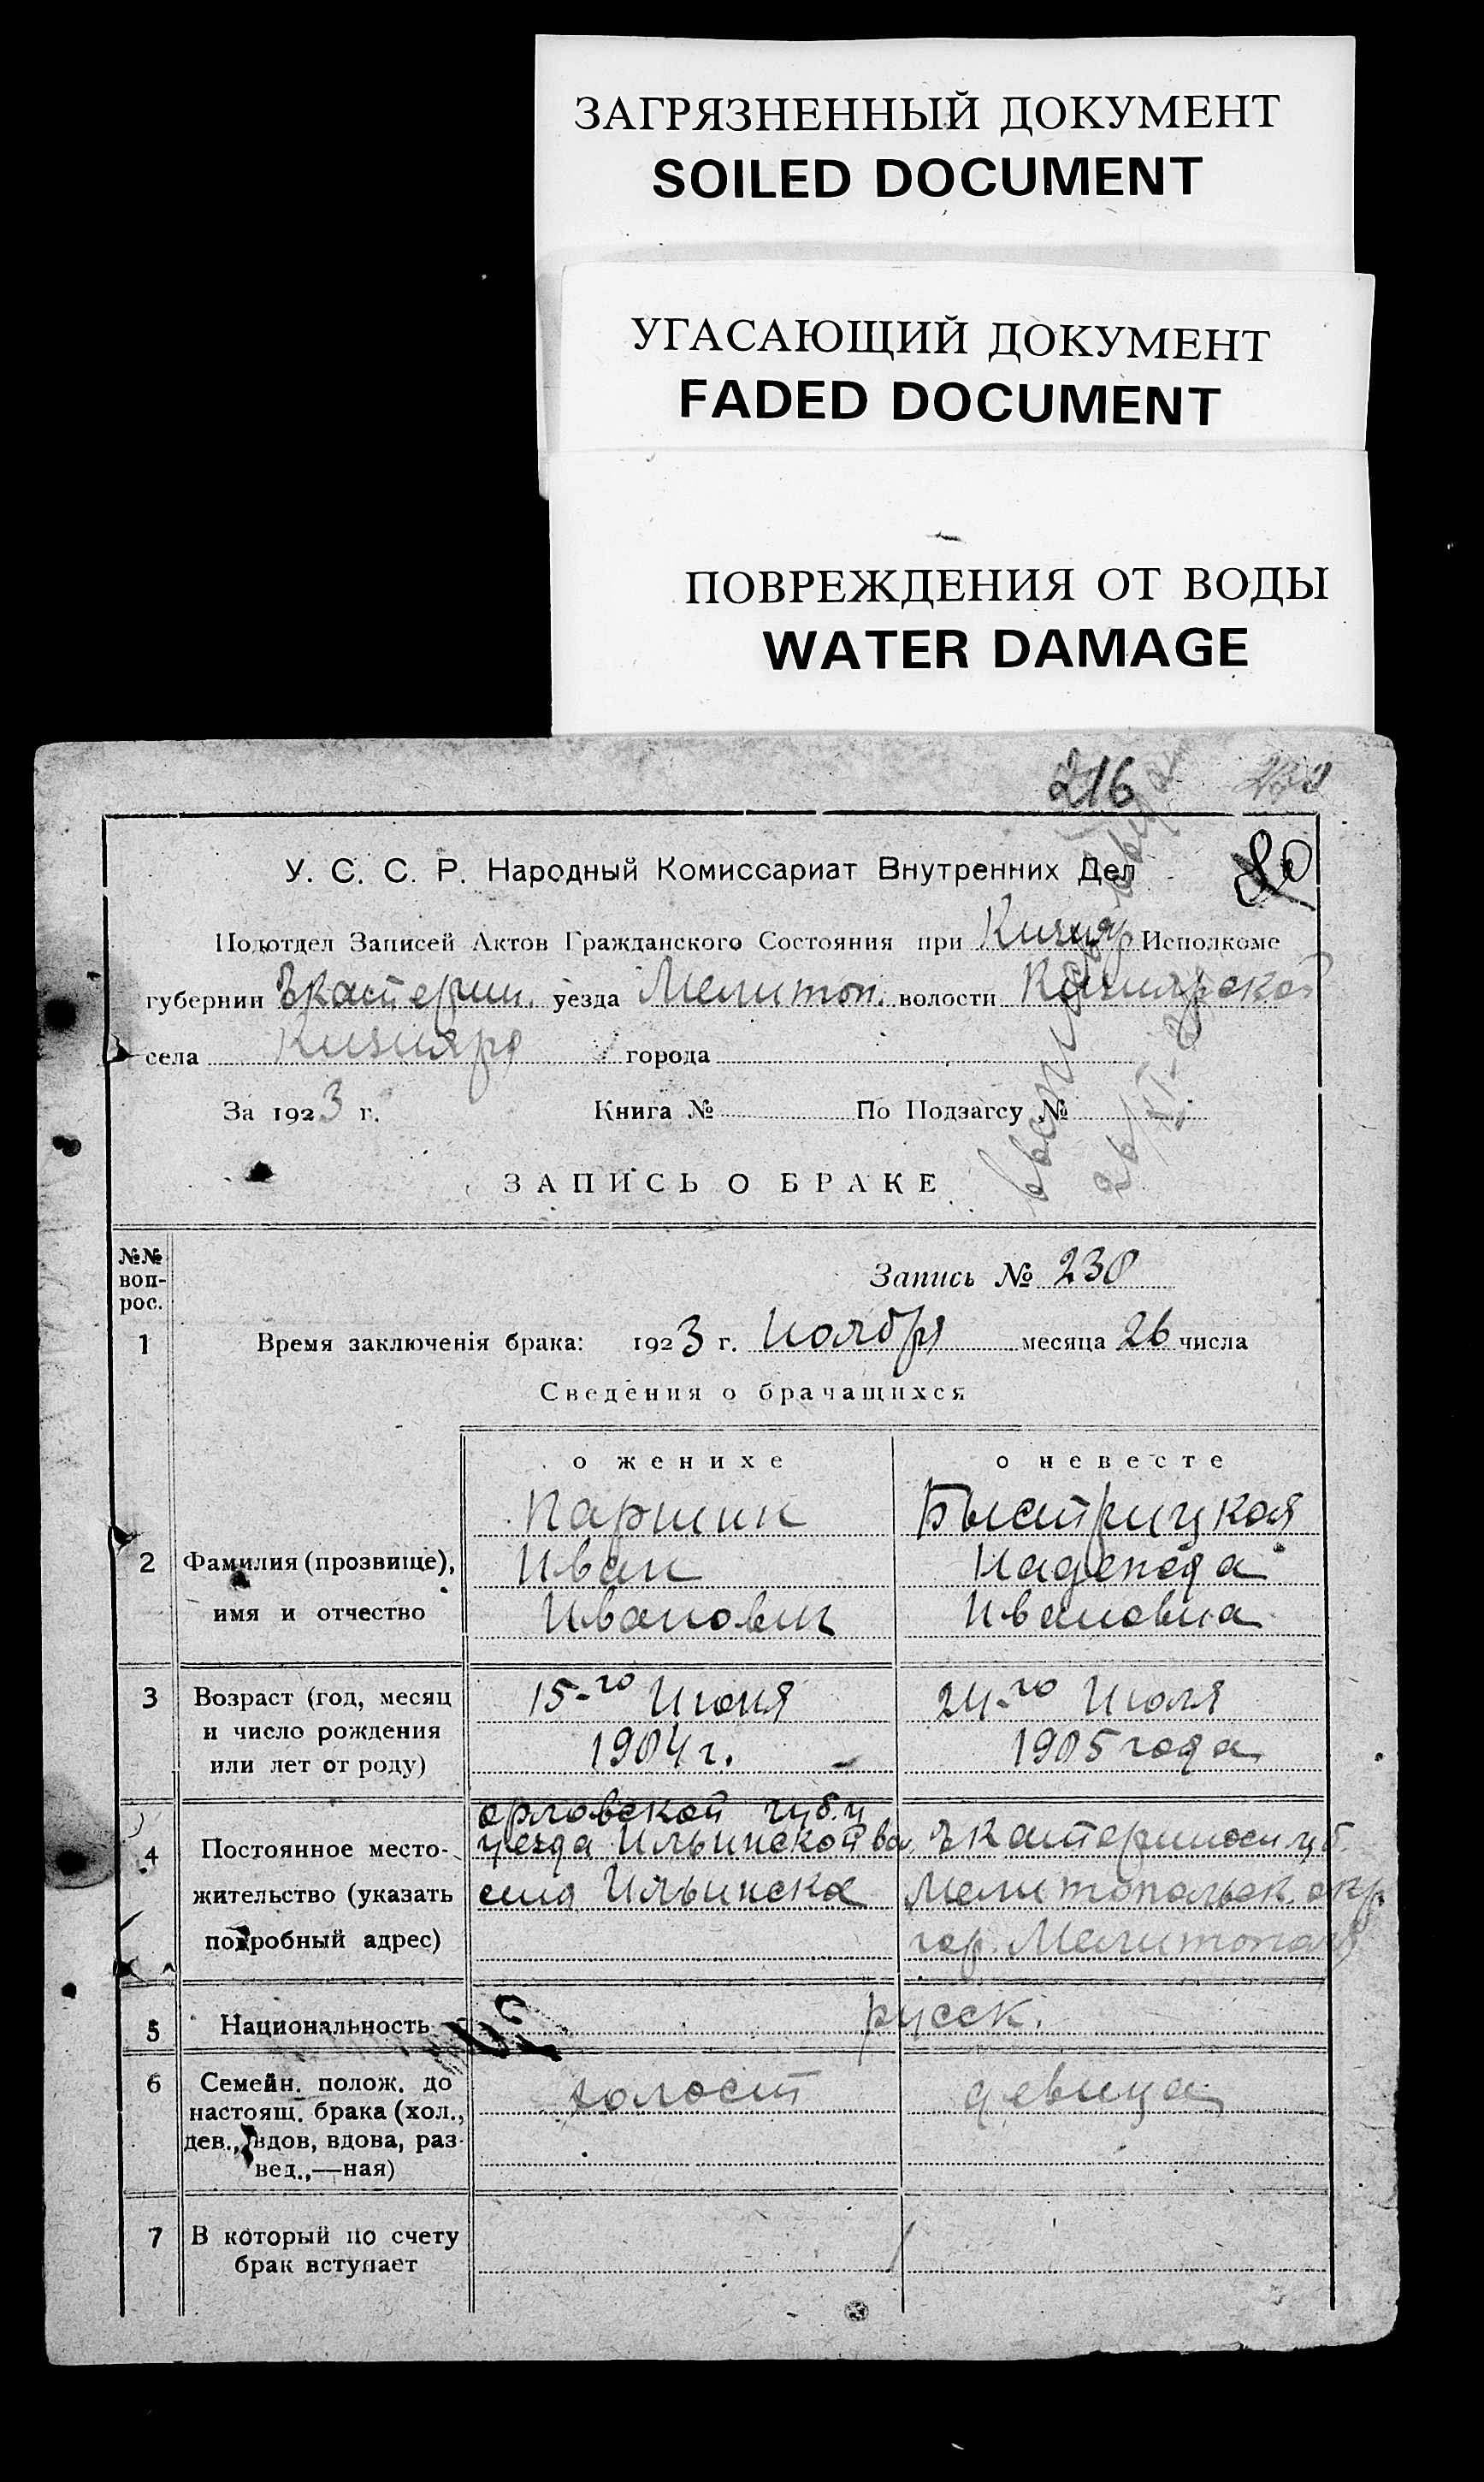 ЗАГРЯЗНЕННЫЙ ДОКУМЕНТ
SOILED DOCUMENT
УГАСАЮЩИЙ ДОКУМЕНТ
FADED DOCUMENT
ПОВРЕЖДЕНИЯ ОТ ВОДЫ
WATER DAMAGE
216
У. С. С. Р. Народный Комиссариат Внутренних Дел
Подотдел Записей Актов Гражданского Состояния при Кизияр Исполкоме
губернии Екатерин. уезда Мелитоп. волости Кизиярской
села Кизияра города
За 1923 г. Книга № По Подзагсу №
ЗАПИСЬ О БРАКЕ
№№ воп-рос.
Запись № 230
1 Время заключенія брака: 1923 г. Ноября месяца 26 числа
Сведения о брачащихся
о женихе о невесте
Паршин Быстрицкая
2 Фамилия (прозвище), Иван Надежда
имя и отчество Иванович Ивановна
3 Возраст (год, месяц 15-го Июня 24-го Июля
и число рождения 1904 г. 1905 года
или лет от роду)
орловской губ. и
4 Постоянное место- уезда Ильинской вол. Екатериносл губ.
жительство (указать села Ильинска Мелитопольск. окр.
подробный адрес) гор. Мелитополь
5 Национальность русск.
6 Семейн. полож. до холост девица
настоящ. брака (хол.,
дев., вдов, вдова, раз-
вед.,—ная)
7 В который по счету
брак вступает